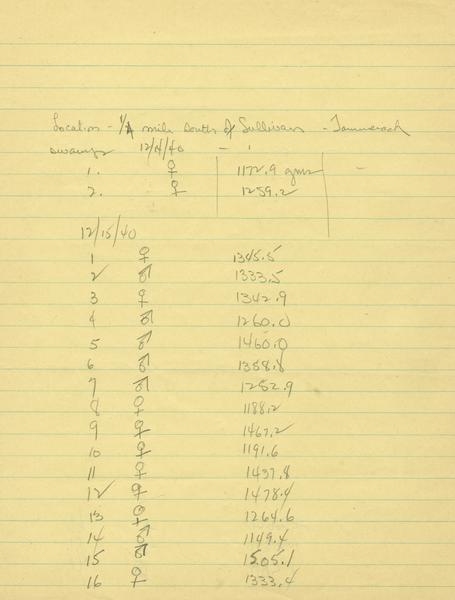 Location - 1/4 mile south of Sullivan - Tammerack
swamp 12/14/40 -
1. ♀ 1172.9 gms -
2. ♀ 1259.2
12/15/40
1 ♀ 1345.5
2 ♂ 1333.5
3 ♀ 1342.9
4 ♂ 1260.0
5 ♂ 1460.0
6 ♂ 1358.8
7 ♂ 1252.9
8 ♀ 1188.2
9 ♀ 1467.2
10 ♀ 1191.6
11 ♀ 1437.8
12 ♀ 1478.4
13 ♀ 1264.6
14 ♂ 1149.4
15 ♂ 1505.1
16 ♀ 1333.4